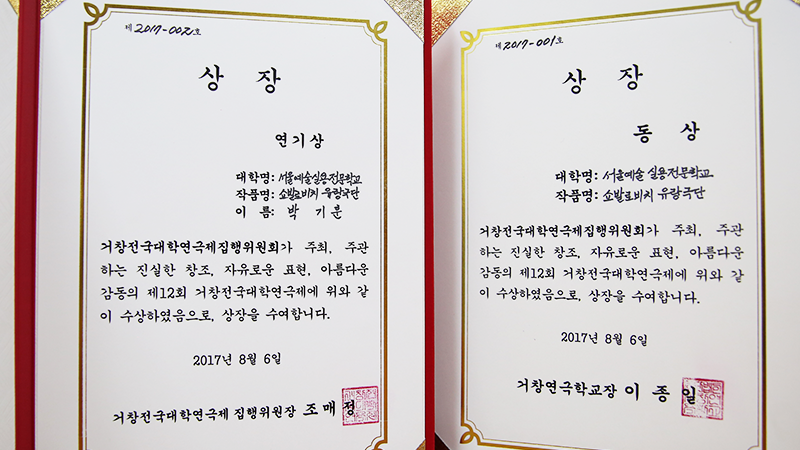 제 2017-002호
상 장
연기상
대학명: 서울예술실용전문학교
작품명: 쇼발로비치 유랑극단
이 름: 박 기 분
거창전국대학연극제집행위원회가 주최, 주관
하는 진실한 창조, 자유로운 표현, 아름다운
감동의 제12회 거창전국대학연극제에 위와 같
이 수상하였음으로, 상장을 수여합니다.
2017년 8월 6일
거창전국대학연극제 집행위원장 조매정
제 2017-001호
상 장
동 상
대학명: 서울예술실용전문학교
작품명: 쇼발로비치 유랑극단
거창전국대학연극제집행위원회가 주최, 주관
하는 진실한 창조, 자유로운 표현, 아름다운
감동의 제12회 거창전국대학연극제에 위와 같
이 수상하였음으로, 상장을 수여합니다.
2017년 8월 6일
거창연극학교장 이 종 일